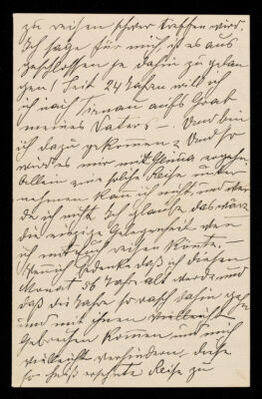 zu reisen schwer treffen wird.
Ich sage für mich ist es aus
geschlossen je dahin zu gelan
gen! Seit 24 Jahren will ich
ich nach Wien aufs Grab
meines Vaters – Und bin
ich dazu gekommen? Und so
würde es mir mit ergehen.
Allein eine solche Reise unter
nehmen kan ich nicht, und wer
de ich nicht. Ich glaube das wäre
die einzige Gelegenheit wen
ich mit Euch reisen könte.
Wenn ich bedenke daß ich diesen
Monat 56 Jahre alt werde und
daß die Jahre so rasch dahin gehen
und mit ihnen vielleicht
Gebrechen kommen und mich
vielleicht verhindern, diese
so heiß ersehnte Reise zu